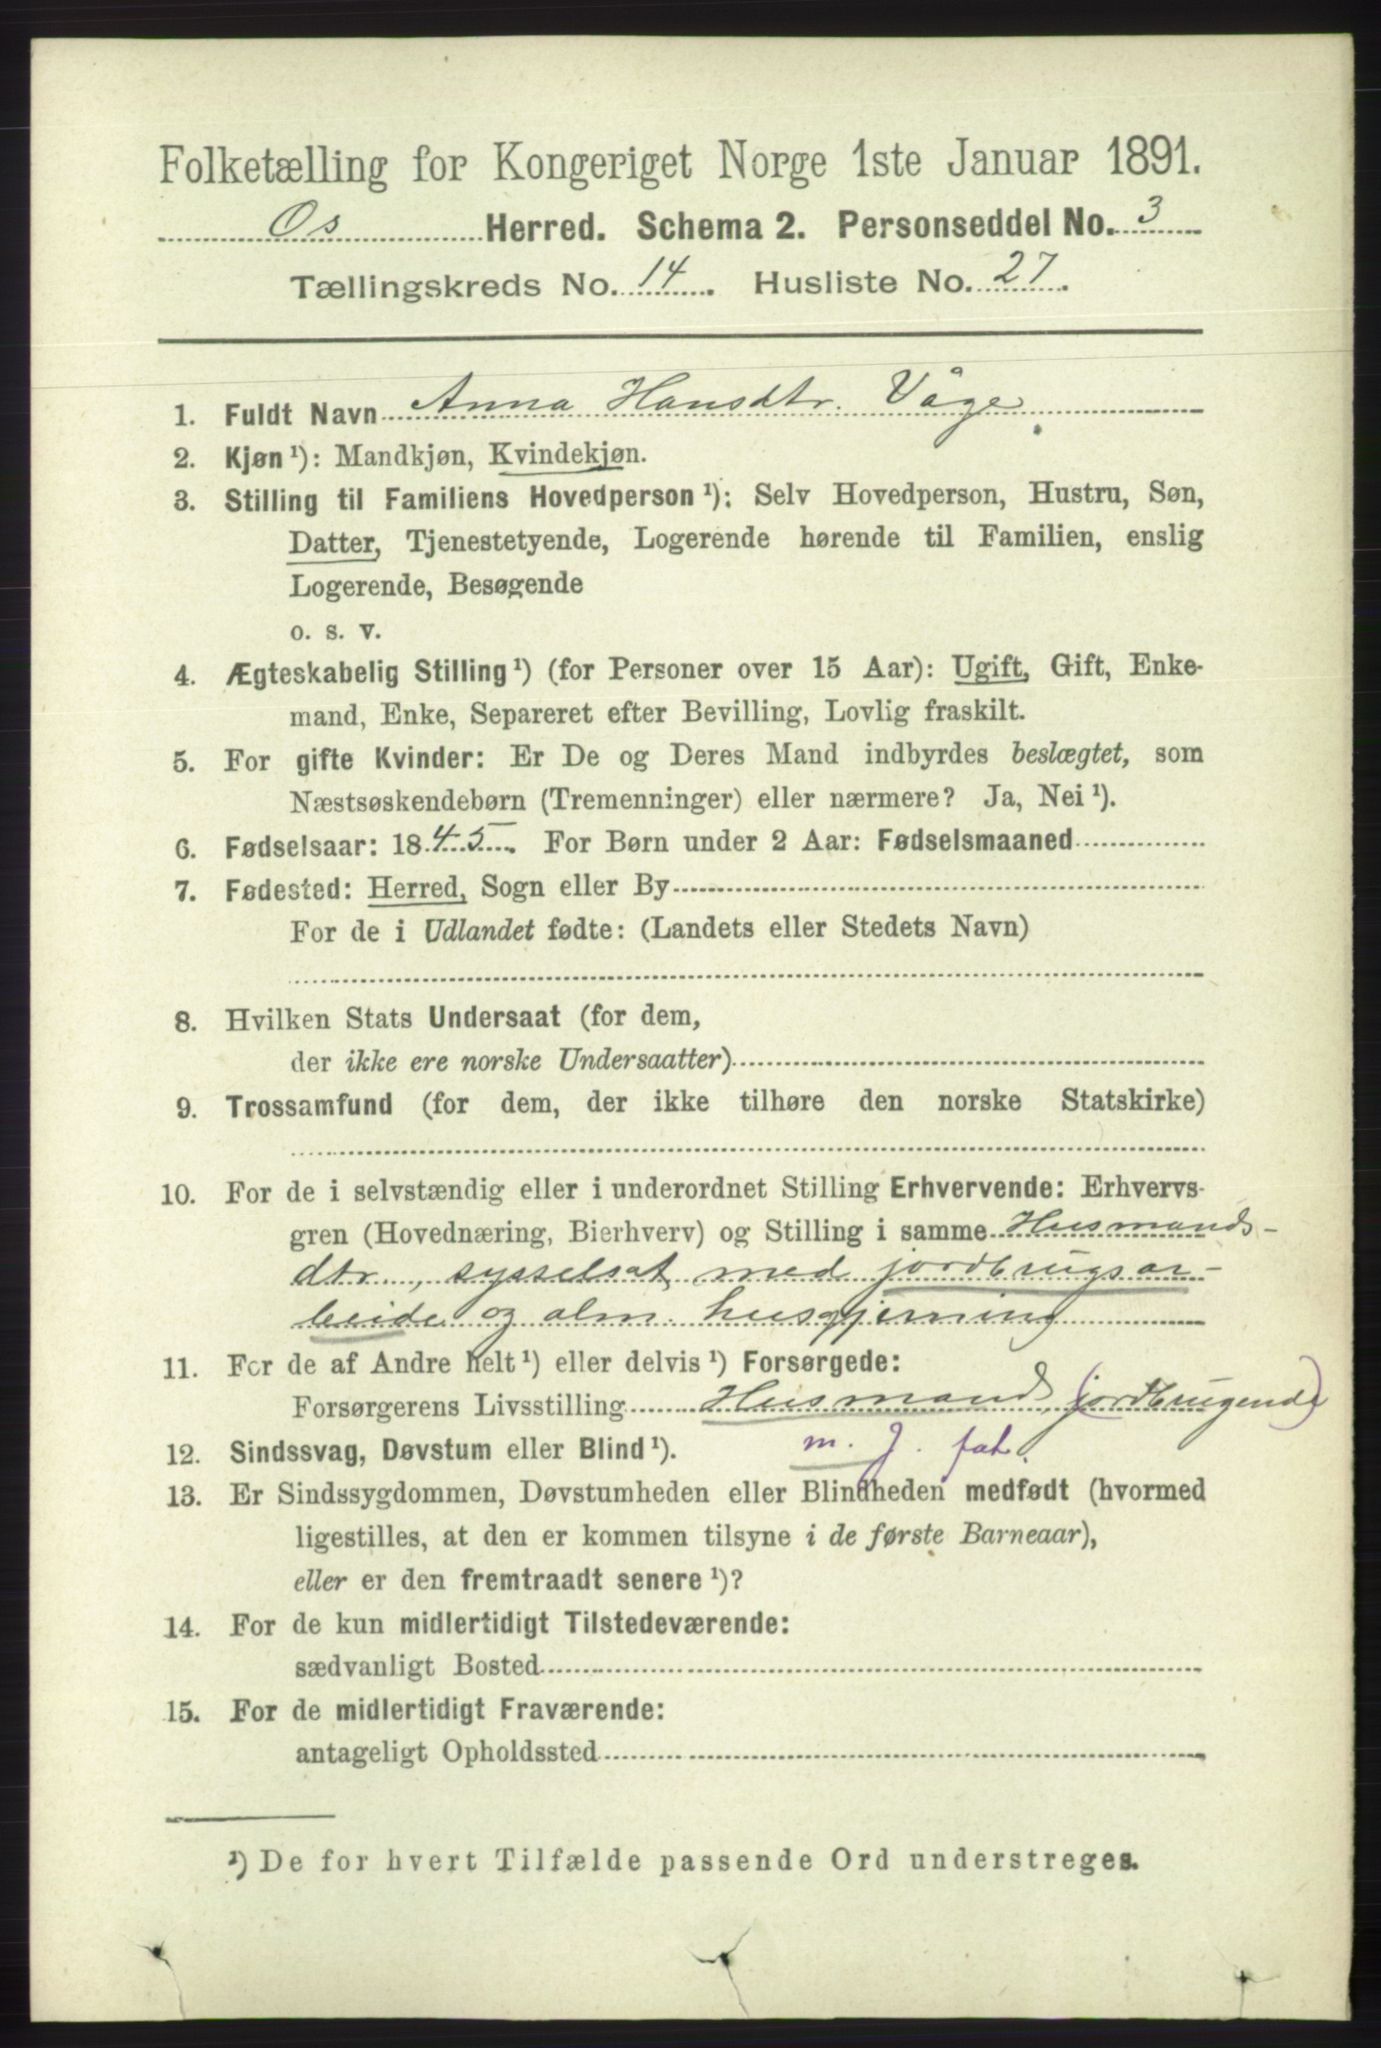 Folketælling for Kongeriget Norge 1ste Januar 1891.
Os Herred. Schema 2. Personseddel No. 3
Tællingskreds No. 14. Husliste No. 27.
1. Fuldt Navn Anna Hansdtr. Våge
2. Kjøn ¹): Mandkjøn, Kvindekjøn.
3. Stilling til Familiens Hovedperson ¹): Selv Hovedperson, Hustru, Søn,
Datter, Tjenestetyende, Logerende hørende til Familien, enslig
Logerende, Besøgende
o. s. v.
4. Ægteskabelig Stilling ¹) (for Personer over 15 Aar): Ugift, Gift, Enke-
mand, Enke, Separeret efter Bevilling, Lovlig fraskilt.
5. For gifte Kvinder: Er De og Deres Mand indbyrdes beslægtet, som
Næstsøskendebørn (Tremenninger) eller nærmere? Ja, Nei ¹).
6. Fødselsaar: 1845. For Børn under 2 Aar: Fødselsmaaned
7. Fødested: Herred, Sogn eller By
For de i Udlandet fødte: (Landets eller Stedets Navn)
8. Hvilken Stats Undersaat (for dem,
der ikke ere norske Undersaatter)
9. Trossamfund (for dem, der ikke tilhøre den norske Statskirke)
10. For de i selvstændig eller i underordnet Stilling Erhvervende: Erhvervs-
gren (Hovednæring, Bierhverv) og Stilling i samme Husmands-
dtr., sysselsat med jordbrugsar-
beide og alm. husgjerning
11. For de af Andre helt ¹) eller delvis ¹) Forsørgede:
Forsørgerens Livsstilling Husmand, (jordbrugende)
12. Sindssvag, Døvstum eller Blind ¹). m. J. fat.
13. Er Sindssygdommen, Døvstumheden eller Blindheden medfødt (hvormed
ligestilles, at den er kommen tilsyne i de første Barneaar),
eller er den fremtraadt senere ¹)?
14. For de kun midlertidigt Tilstedeværende:
sædvanligt Bosted
15. For de midlertidigt Fraværende:
antageligt Opholdssted
¹) De for hvert Tilfælde passende Ord understreges.